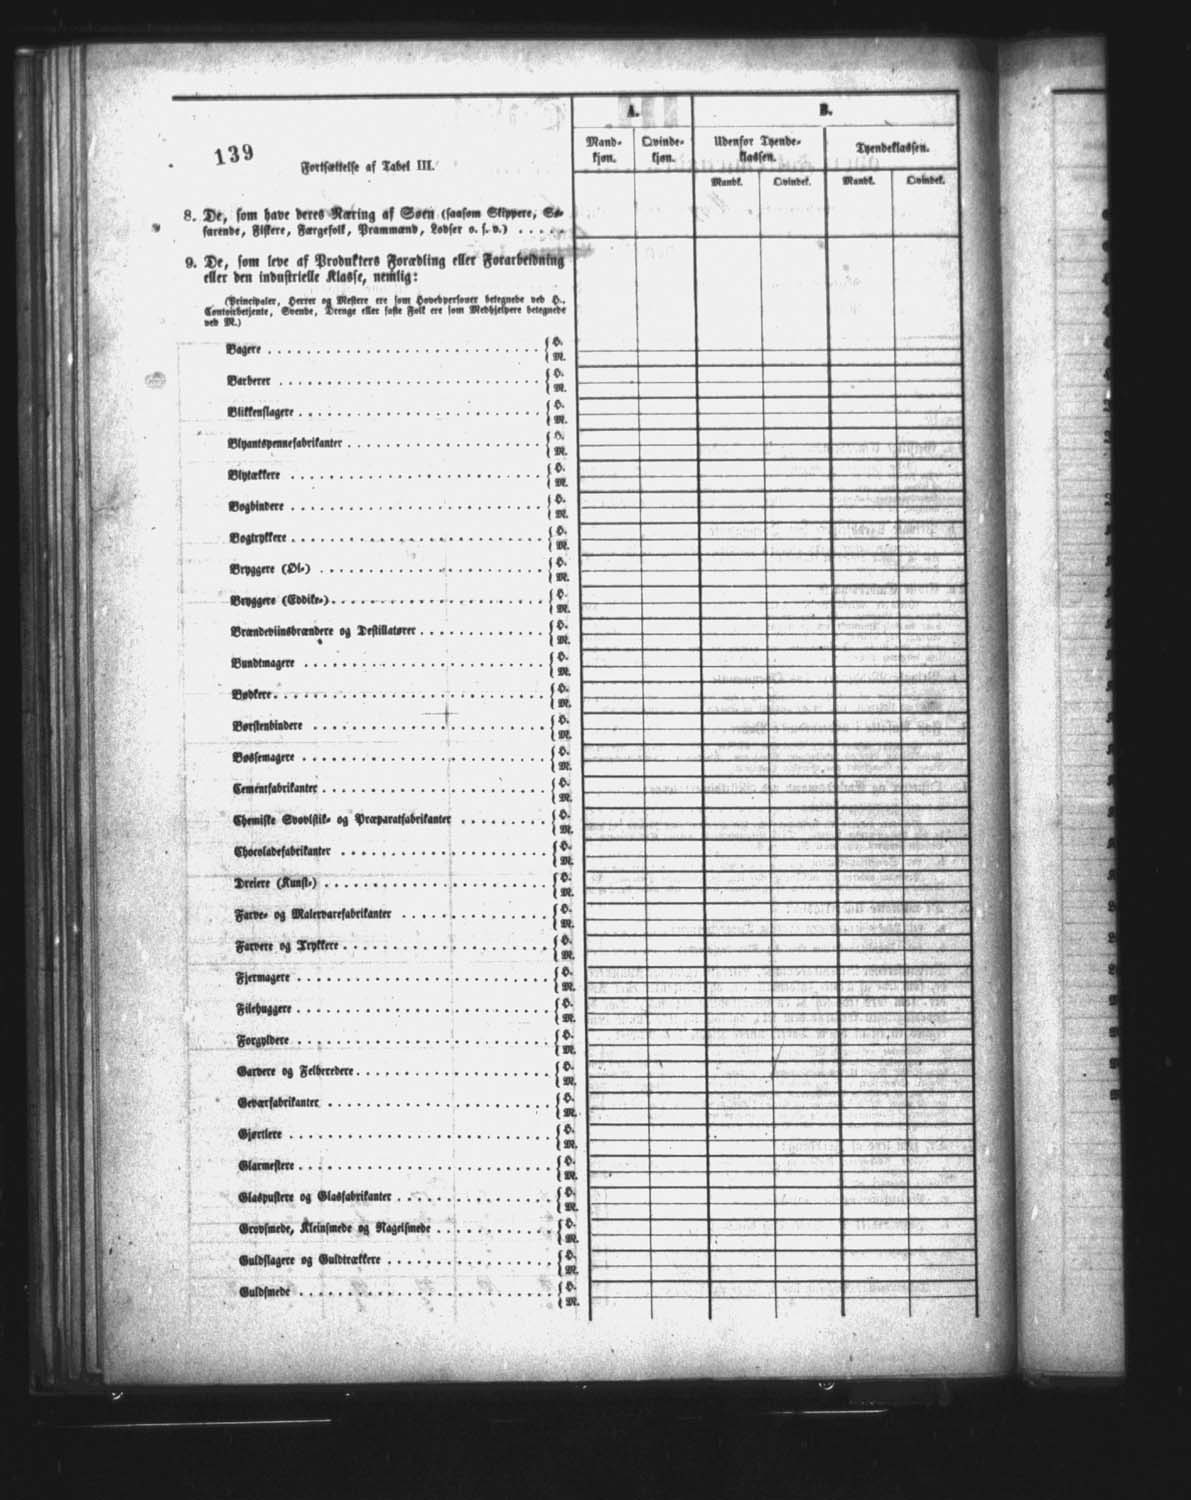 139
Fortsættelse af Tabel III.
A.
B.
Mand-
kjøn.
Qvinde-
kjøn.
Udenfor Tyende-
klassen.
Tyendeklassen.
Mandk.
Qvindek.
Mandk.
Qvindek.
8. De, som have deres Næring af Søen (saasom Skippere, Sø-
farende, Fiskere, Færgefolk, Prammænd, Lodser o. s. v.) . . . . .
9. De, som leve af Produkters Forædling eller Forarbeidning
eller den industrielle Klasse, nemlig:
(Principaler, Herrer og Mestere ere som Hovedpersoner betegnede ved H.,
Contoirbetjente, Svende, Drenge eller faste Folk ere som Medhjelpere betegnede
ved M.)
Bagere { H.
{ M.
Barberer { H.
{ M.
Blikkenslagere { H.
{ M.
Blyantspennefabrikanter { H.
{ M.
Blytækkere { H.
{ M.
Bogbindere { H.
{ M.
Bogtrykkere { H.
{ M.
Bryggere (Øl-) { H.
{ M.
Bryggere (Eddike-) { H.
{ M.
Brændeviinsbrændere og Destillatører { H.
{ M.
Bundtmagere { H.
{ M.
Bødkere { H.
{ M.
Børstenbindere { H.
{ M.
Bøssemagere { H.
{ M.
Cementfabrikanter { H.
{ M.
Chemiske Svovlstik- og Præparatfabrikanter { H.
{ M.
Chocoladefabrikanter { H.
{ M.
Dreiere (Kunst-) { H.
{ M.
Farve- og Malervarefabrikanter { H.
{ M.
Farvere og Trykkere { H.
{ M.
Fjermagere { H.
{ M.
Filehuggere { H.
{ M.
Forgyldere { H.
{ M.
Garvere og Felberedere { H.
{ M.
Geværfabrikanter { H.
{ M.
Gjørtlere { H.
{ M.
Glarmestere { H.
{ M.
Glaspustere og Glasfabrikanter { H.
{ M.
Grovsmede, Kleinsmede og Nagelsmede { H.
{ M.
Guldslagere og Guldtrækkere { H.
{ M.
Guldsmede { H.
{ M.